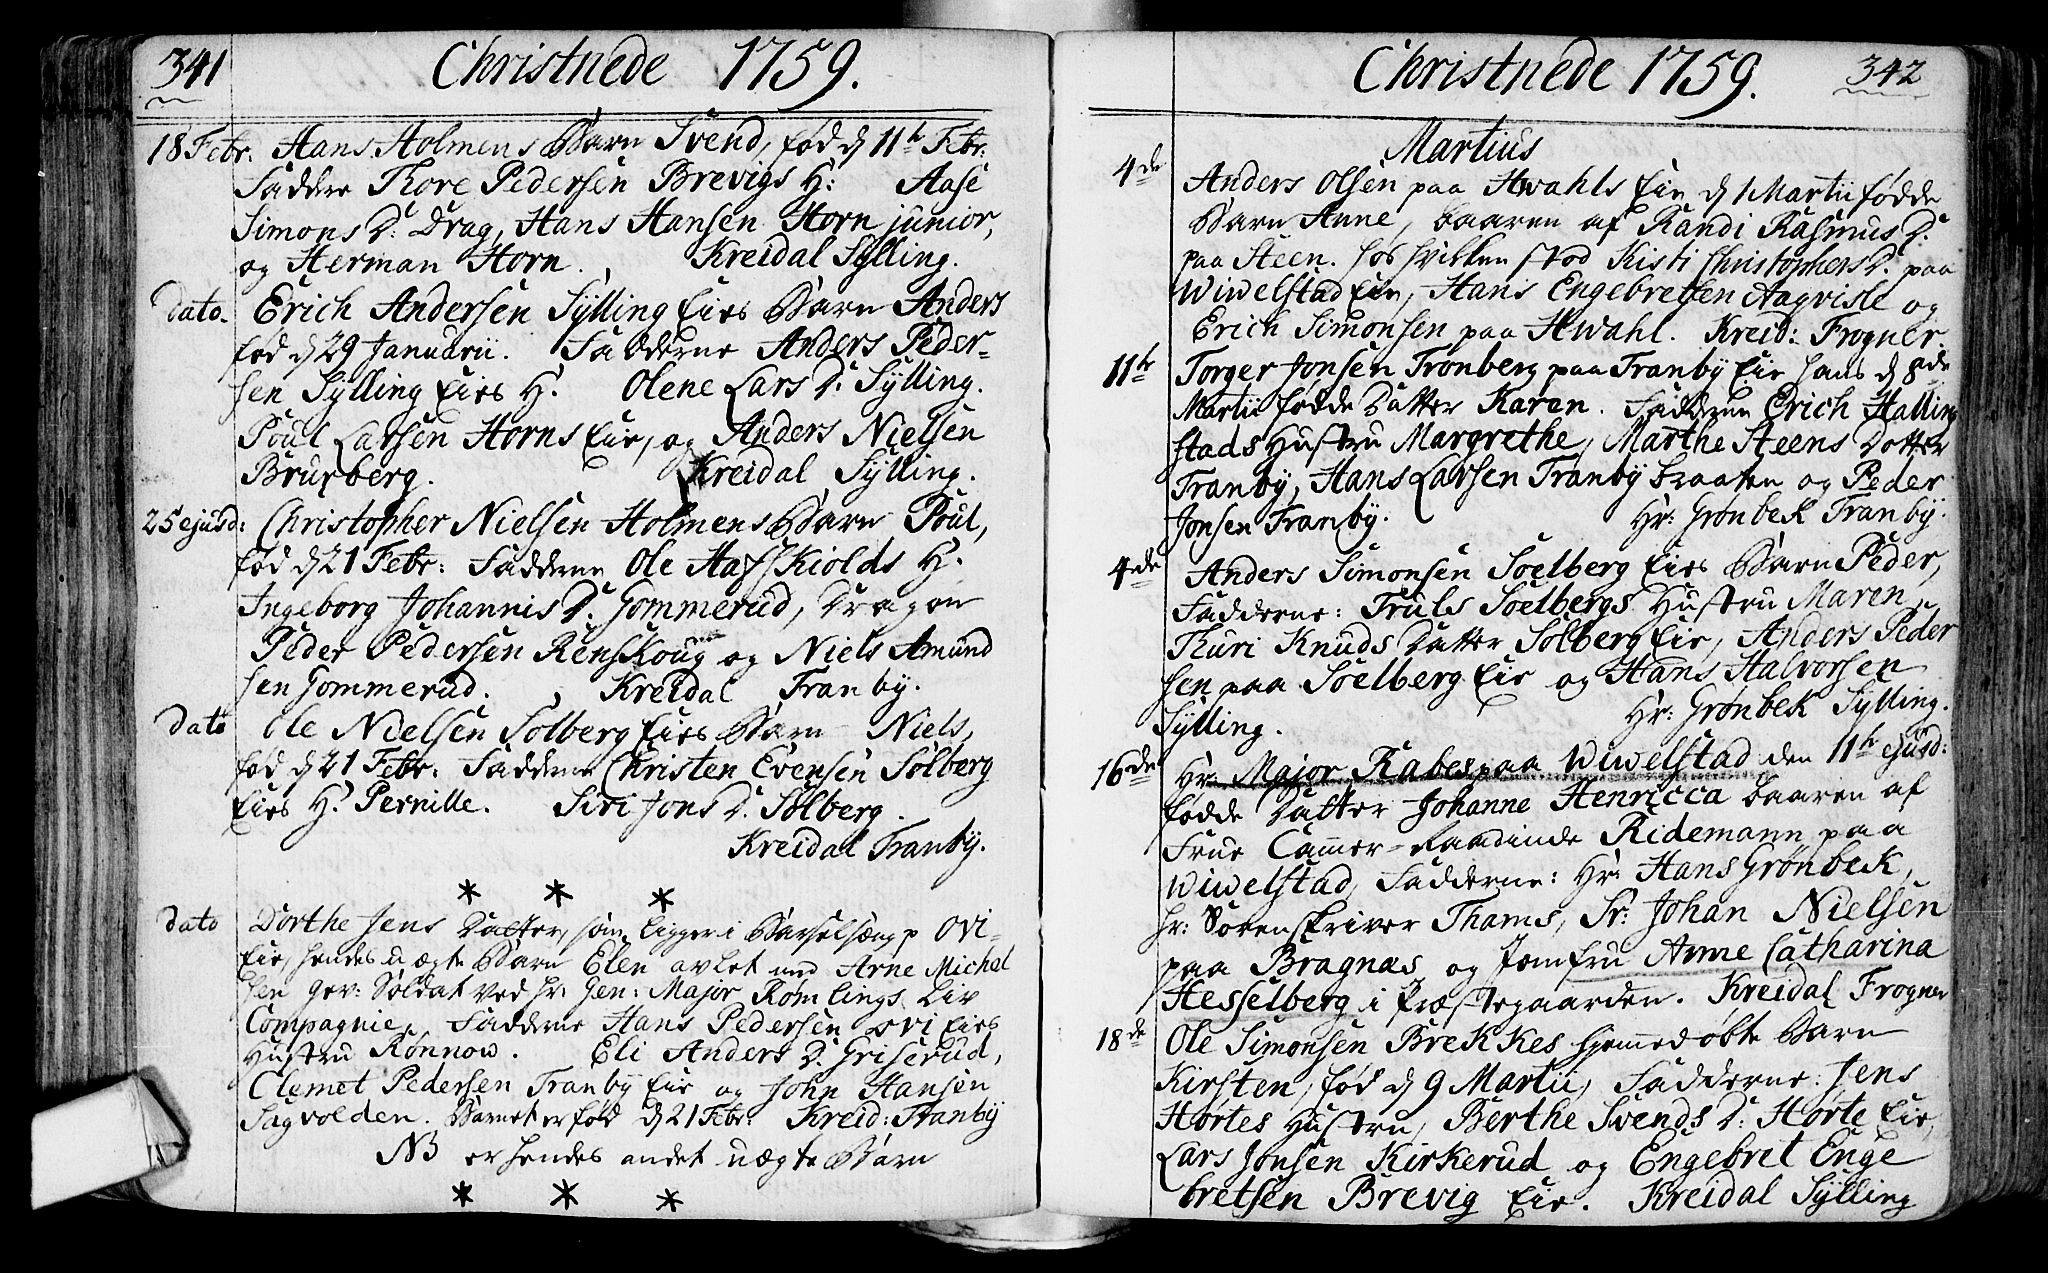 341 Christnede 1759.
18 Febr. Hans Holmens Barn Svend, fød d 11te Febr:
Faddere Thore Pedersen Brevigs H: Aase
Simons D: Drag, Hans Hansen Horn junior,
og Herman Horn. Kreidal Sÿlling.
dato. Erich Andersen Sÿlling Eies Barn Anders
fød d 29 Januarii. Fadderne Anders Peder-
sen Sÿlling Eies H. Olene Lars D: Sÿlling.
Poul Larsen Horns Eie, og Anders Nielsen
Brurberg. Kreidal Sÿlling.
25 ejusd: Christopher Nielsen Holmens Barn Poul,
fød d 21 Febr: Fadderne Ole Hafskiolds H.
Ingeborg Johannis D. Gommerud, Dragon
Peder Pedersen Renskoug og Niels Amund
sen Gommerud. Kreidal Tranby.
dato Ole Nielsen Solberg Eies Barn Niels,
fød d 21 Febr: Faddere Christen Evensen Solberg
Eies H. Pernille. Siri Jons D. Solberg.
Kreidal Tranbÿ.
* * *
dato Dorthe Jens Datter, som ligger i Barselseng p Ovi-
Eie, hendes uægte Barn Elen avlet med Arne Michel
sen gev: Soldat ved Hr: Gen: Major Rømlings Liv
Compagnie, Fadderne Hans Pedersen Ovi Eies
Hustru Rønnow. Eli Anders D. Griserud,
Clemet Pedersen Tranbÿ Eie og John Hansen
Sagvolden. Barnet er fød d 21 Febr: Kreid: Tranbÿ
NB er hendes andet uægte Barn
* * *
Christnede 1759. 342
Martius
4de Anders Olsen paa Hwahls Eie d 1 Martii fødde
Barn Anne, baaren af Randi Rasmus D:
paa Steen. hos hvilken stod Kisti Christophers D. paa
Wiwelstad Eie, Hans Engebretsen Aagvisle og
Erich Simonsen paa Hwahl. Kreid: Frogner.
11te Torger Jonsen Tronberg paa Tranbÿ Eie hans d 8de
Martii fødde Datter Karen. Fadderne Erich Halling
stads Hustru Margrethe, Marthe Steens Dotter
Tranbÿ, Hans Larsen Tranbÿ braaten og Peder
Jonsen Tranbÿ. Hr: Grønbek Tranbÿ.
4de Anders Simonsen Soelberg Eies Barn Peder,
Fadderne: Truls Soelbergs Hustru Maren,
Thuri Knuds Datter Solberg Eie, Anders Peder
sen paa Soelberg Eie og Hans Halvorsen
Sÿlling. Hr: Grønbek Sÿlling.
16de Hr: Major Rabes paa Wiwelstad den 11te ejusd:
fødde Datter Johanne Henricca baaren af
Frue Cammer-Raadinde Ridemann paa
Wiwelstad, Fadderne: Hr: Hans Grønbek,
Hr: Sorenskriver Thams, Sr: Johan Nielsen
paa Bragnæs og Jomfru Anne Catharina
Hesselberg i Præstegaarden. Kreidal Frogner
18de Ole Simonsen Brekkes hjemmedøbte Barn
Kirsten, fød d 9 Martii, Fadderne: Jens
Hørtes Hustru, Berthe Svends D: Hørte Eie,
Lars Jonsen Kirkerud og Engebret Enge
bretsen Brevig Eie. Kreidal Sÿlling